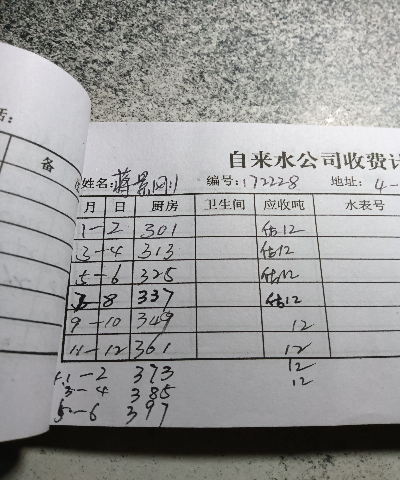 话:
备
自来水公司收费
姓名:蒋景刚 编号:172228 地址:4-
月 日 厨房 卫生间 应收吨 水表号
1-2 301 估12
3-4 313 估12
5-6 325 估12
7-8 337 估12
9-10 349 12
11-12 361 12
1-2 373 12
3-4 385 12
5-6 397